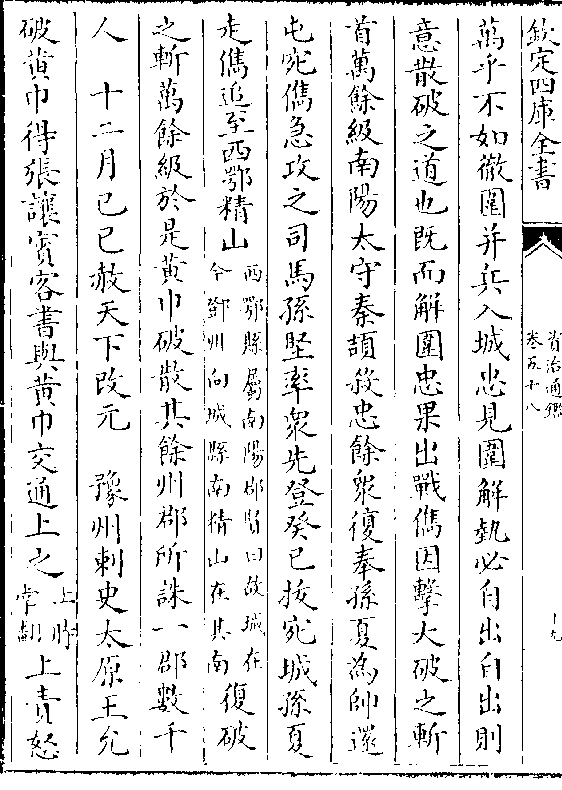 欽定四庫全書
資治通鑑
卷五十八
十九
萬乎不如徹圍并兵入城忠見圍解勢必自出自出則
意散破之道也既而解圍忠果出戰儁因擊大破之斬
首萬餘級南陽太守秦頡殺忠餘衆復奉孫夏為帥還
屯宛儁急攻之司馬孫堅率衆先登癸已拔宛城孫夏
走儁追至西鄂精山西鄂縣屬南陽郡賢曰故城在今鄧州向城縣南精山在其南復破
之斬萬餘級於是黄巾破散其餘州郡所誅一郡數千
人 十二月已已赦天下改元 豫州刺史太原王允
破黄巾得張讓賓客書與黄巾交通上之上時掌翻上責怒